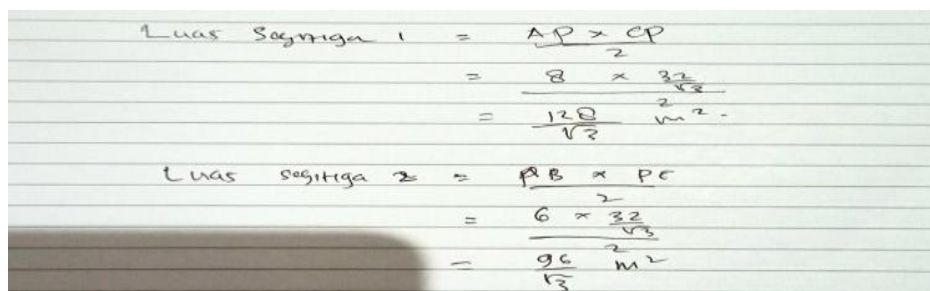 Luas Segitiga 1 = AP x CP / 2
= 8 x 32/√3 / 2
= 128/√3 m².
Luas segitiga 2 = PB x PC / 2
= 6 x 32/√3 / 2
= 96/√3 m²